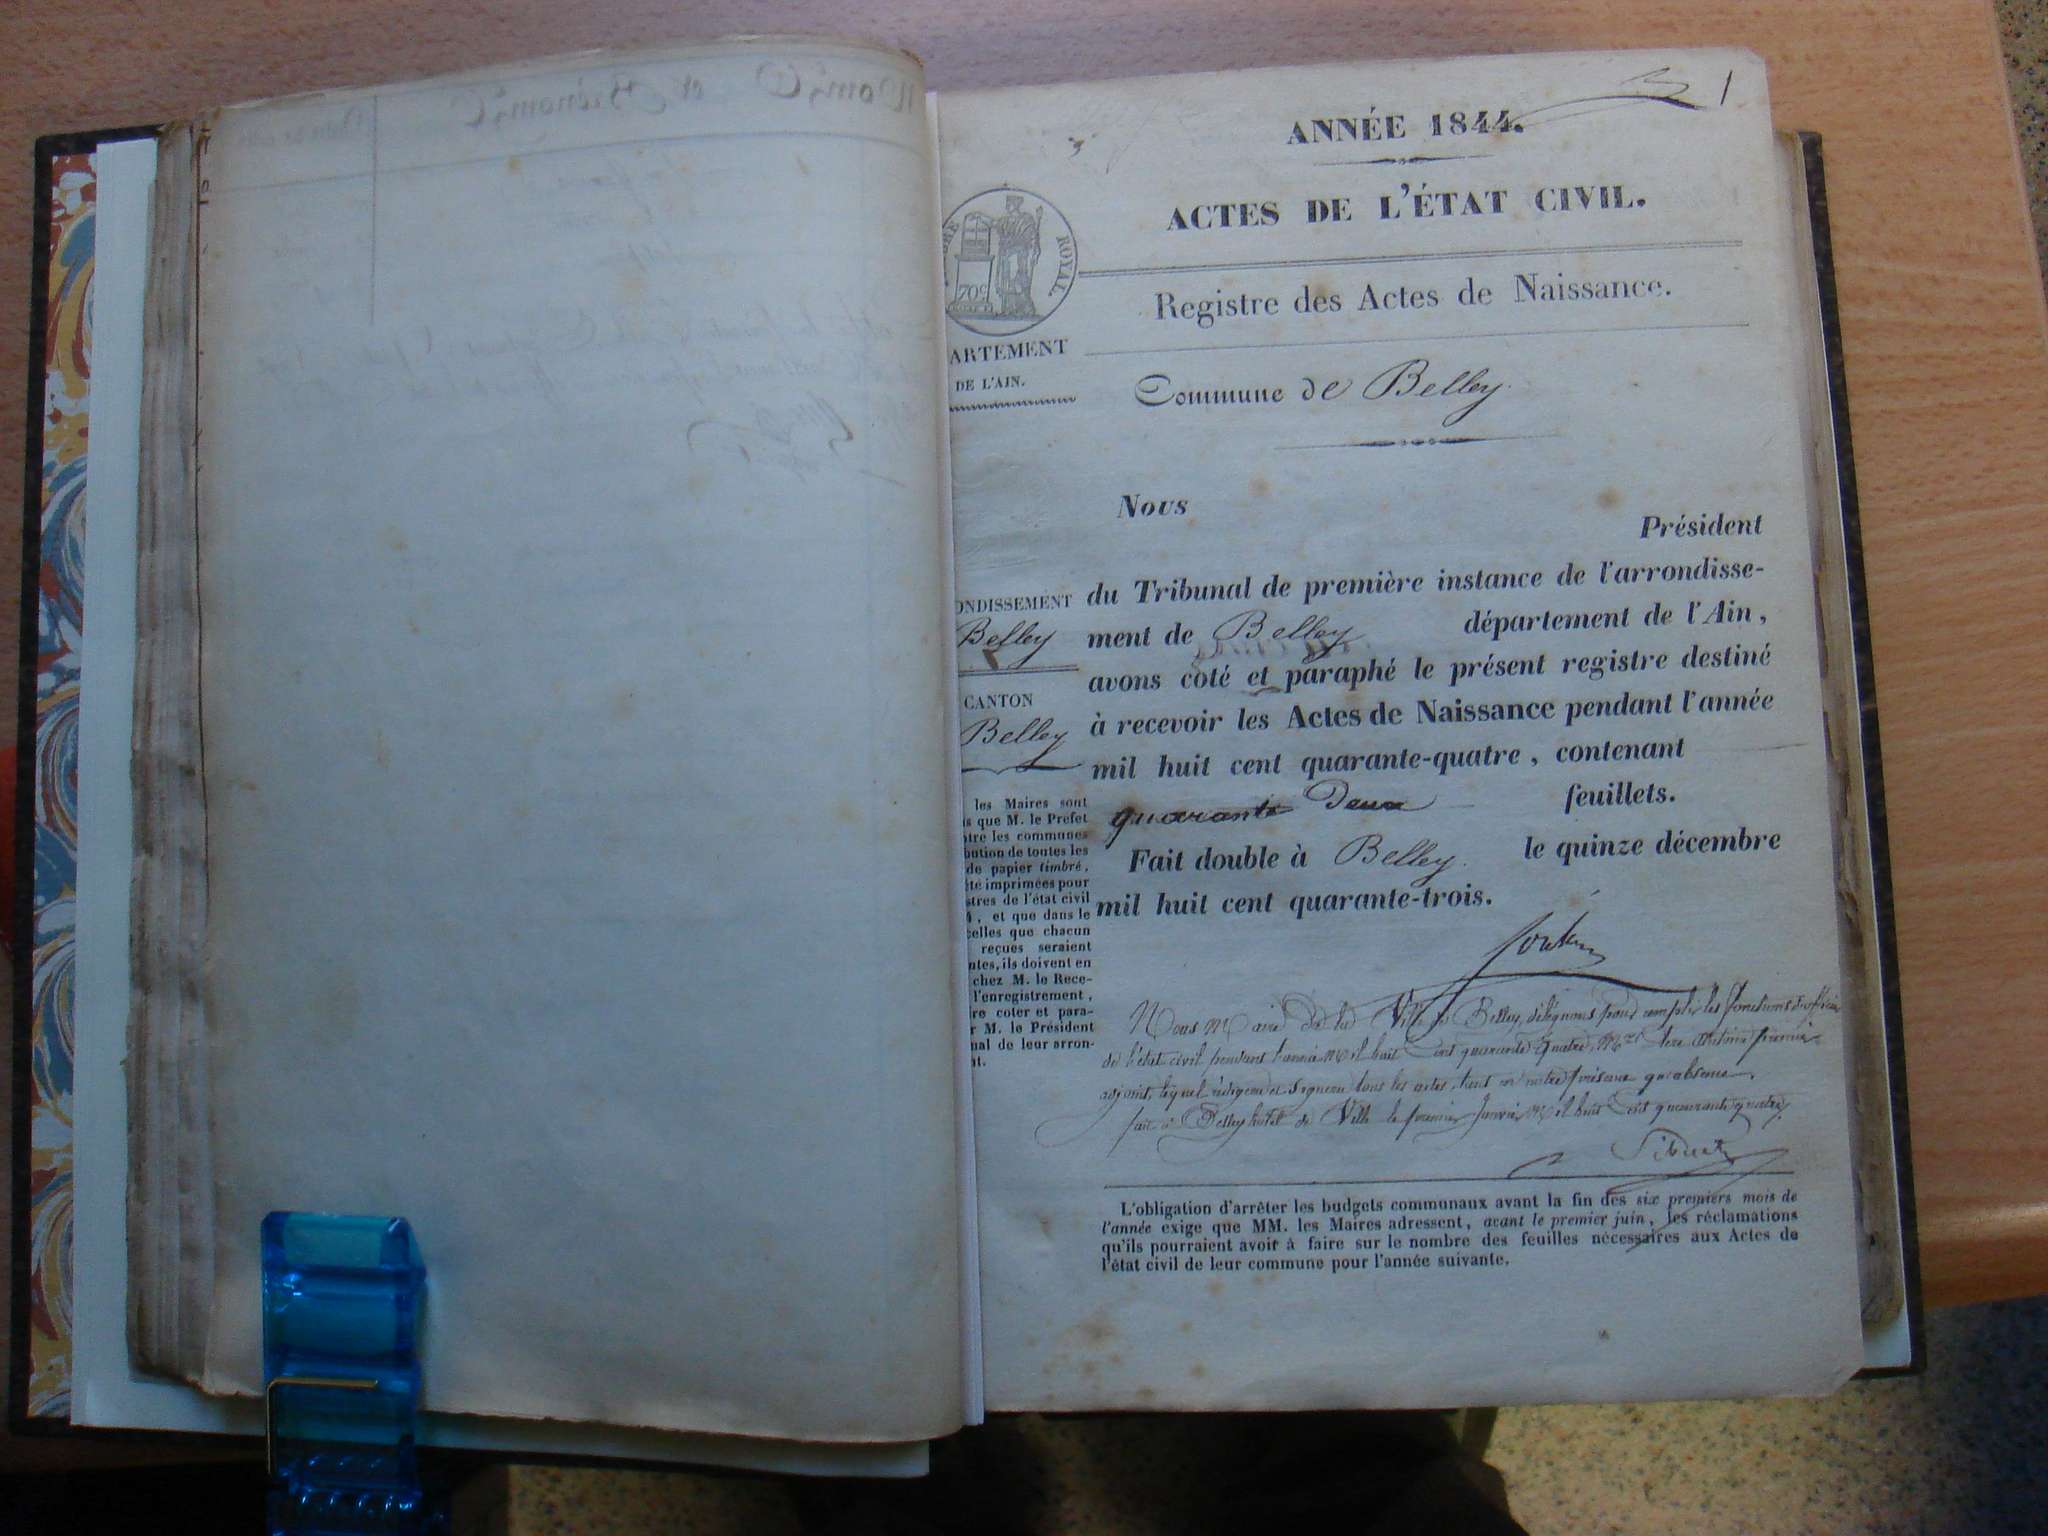 Noms et Prénoms
1
ANNÉE 1844.
ACTES DE L'ÉTAT CIVIL.
ROYAL.
70c
Registre des Actes de Naissance.
ARTEMENT
DE L'AIN.
Commune de Belley.
Nous
Président
du Tribunal de première instance de l'arrondisse-
ment de Belley département de l'Ain,
avons coté et paraphé le présent registre destiné
à recevoir les Actes de Naissance pendant l'année
mil huit cent quarante-quatre, contenant
quarante Deux feuillets.
Fait double à Belley. le quinze décembre
mil huit cent quarante-trois.
ONDISSEMENT
Belley
CANTON
Belley
les Maires sont
s que M. le Prefet
tre les communes
bution de toutes les
de papier timbré,
été imprimées pour
stres de l'état civil
4, et que dans le
celles que chacun
reçues seraient
ntes, ils doivent en
chez M. le Rece-
l'enregistrement,
re coter et para-
r M. le Président
nal de leur arron-
nt.
Nous Maire de la Ville de Belley, déléguons pour remplir les fonctions d'officier
de l'état civil pendant l'année Mil huit Cent quarante Quatre, Antoine premier
adjoint, lequel rédigera et Signera tous les actes, tant en notre présence qu'absence.
fait à Belley hôtel de Ville le premier Janvier Mil huit Cent quarante quatre
Sibuet
L'obligation d'arrêter les budgets communaux avant la fin des six premiers mois de
l'année exige que MM. les Maires adressent, avant le premier juin, les réclamations
qu'ils pourraient avoir à faire sur le nombre des feuilles nécessaires aux Actes de
l'état civil de leur commune pour l'année suivante.